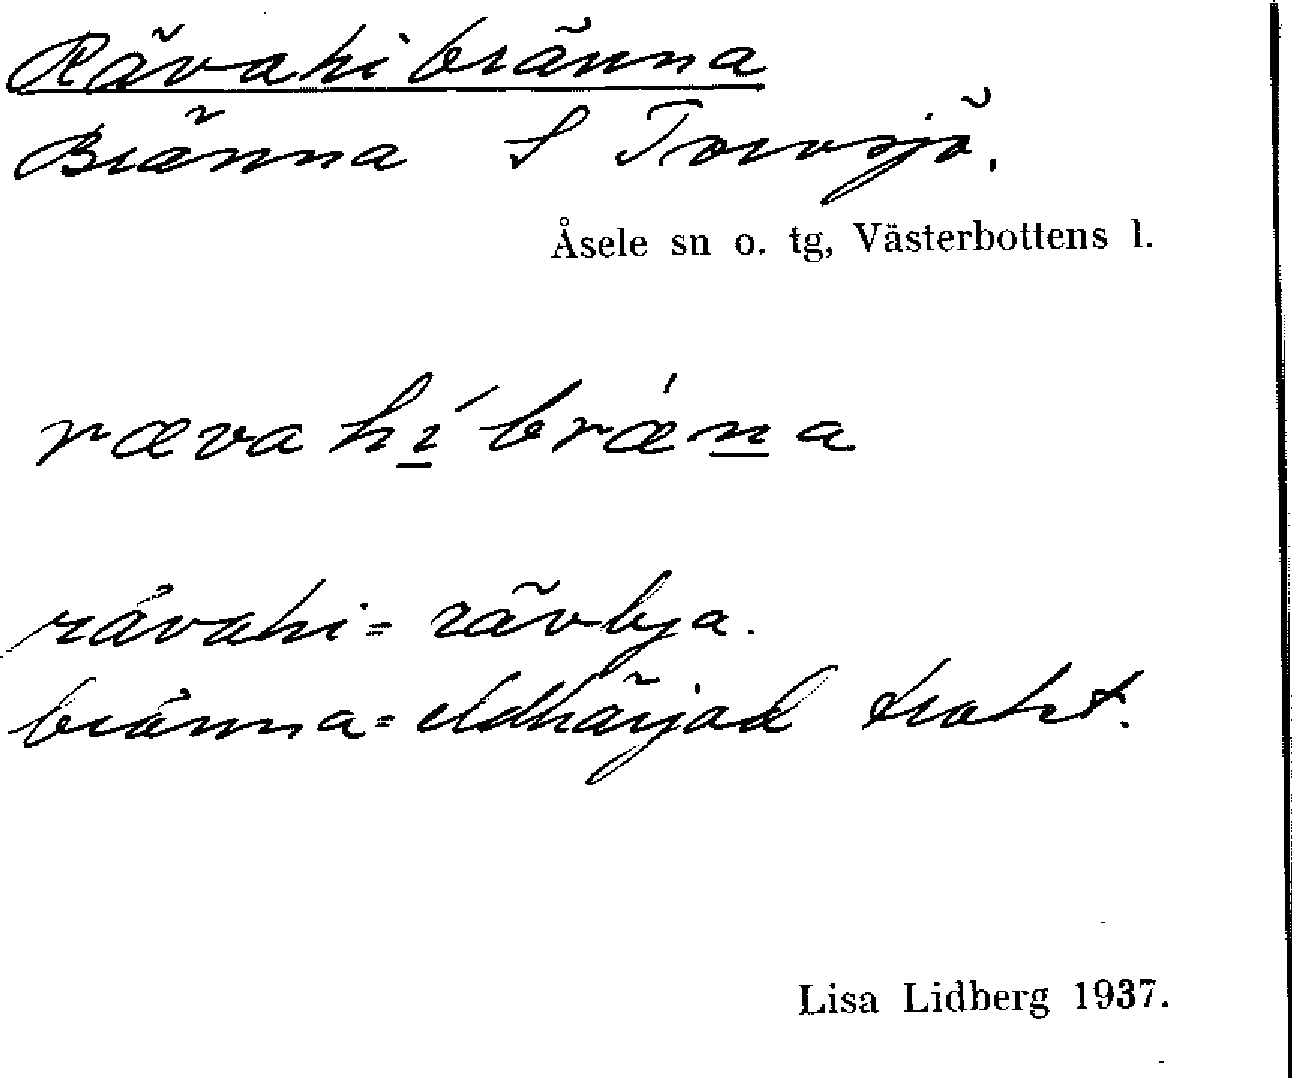 Rävahibränna
Bränna S Torvsjö.
Åsele sn o. tg, Västerbottens l.
rævahı́brǽna
rävahi = rävlya.
bränna = eldhärjad trakt.
Lisa Lidberg 1937.